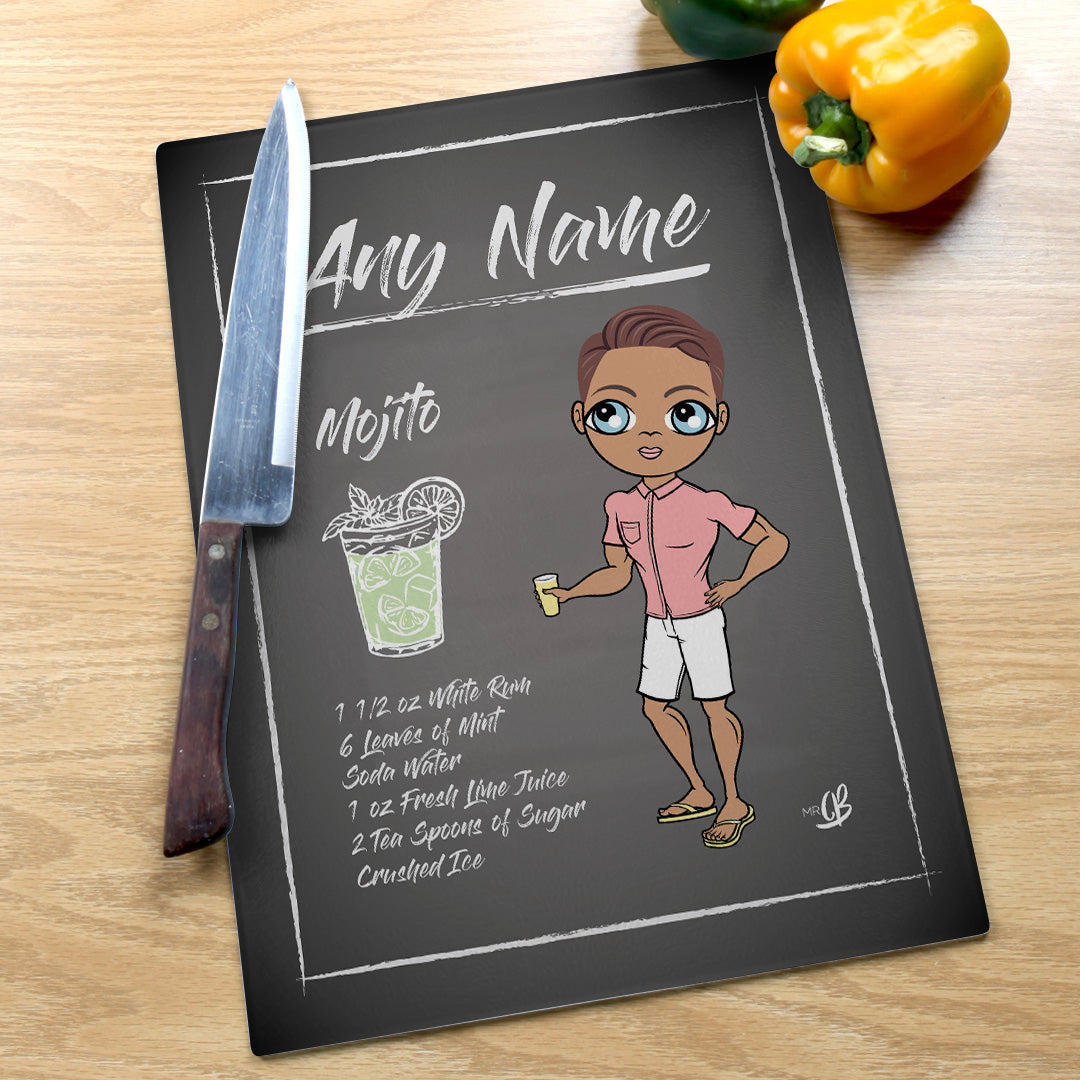 Any Name
Mojito
1 1/2 oz White Rum
6 Leaves of Mint
Soda Water
1 oz Fresh Lime Juice
2 Tea Spoons of Sugar
Crushed Ice
MR CB